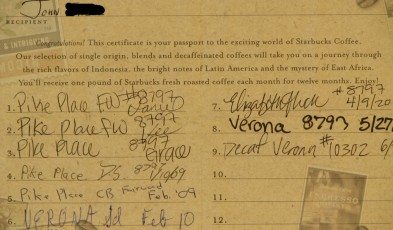 John
RECIPIENT
Congratulations! This certificate is your passport to the exciting world of Starbucks Coffee.
Our selection of single origin, blends and decaffeinated coffees will take you on a journey through
the rich flavors of Indonesia, the bright notes of Latin America and the mystery of East Africa.
You'll receive one pound of Starbucks fresh roasted coffee each month for twelve months. Enjoy!
1. Pike Place FW #8797
2. Pike Place FW 8797
3. Pike Place 8797 Grace
4. Pike Place
5. Pike Place CB Feb. '09
6. VERONA Feb 10
7. #8797
4/9/20
8. Verona 8793 5/27/
9. Decaf Verona #10302 6/
10.
11.
12.